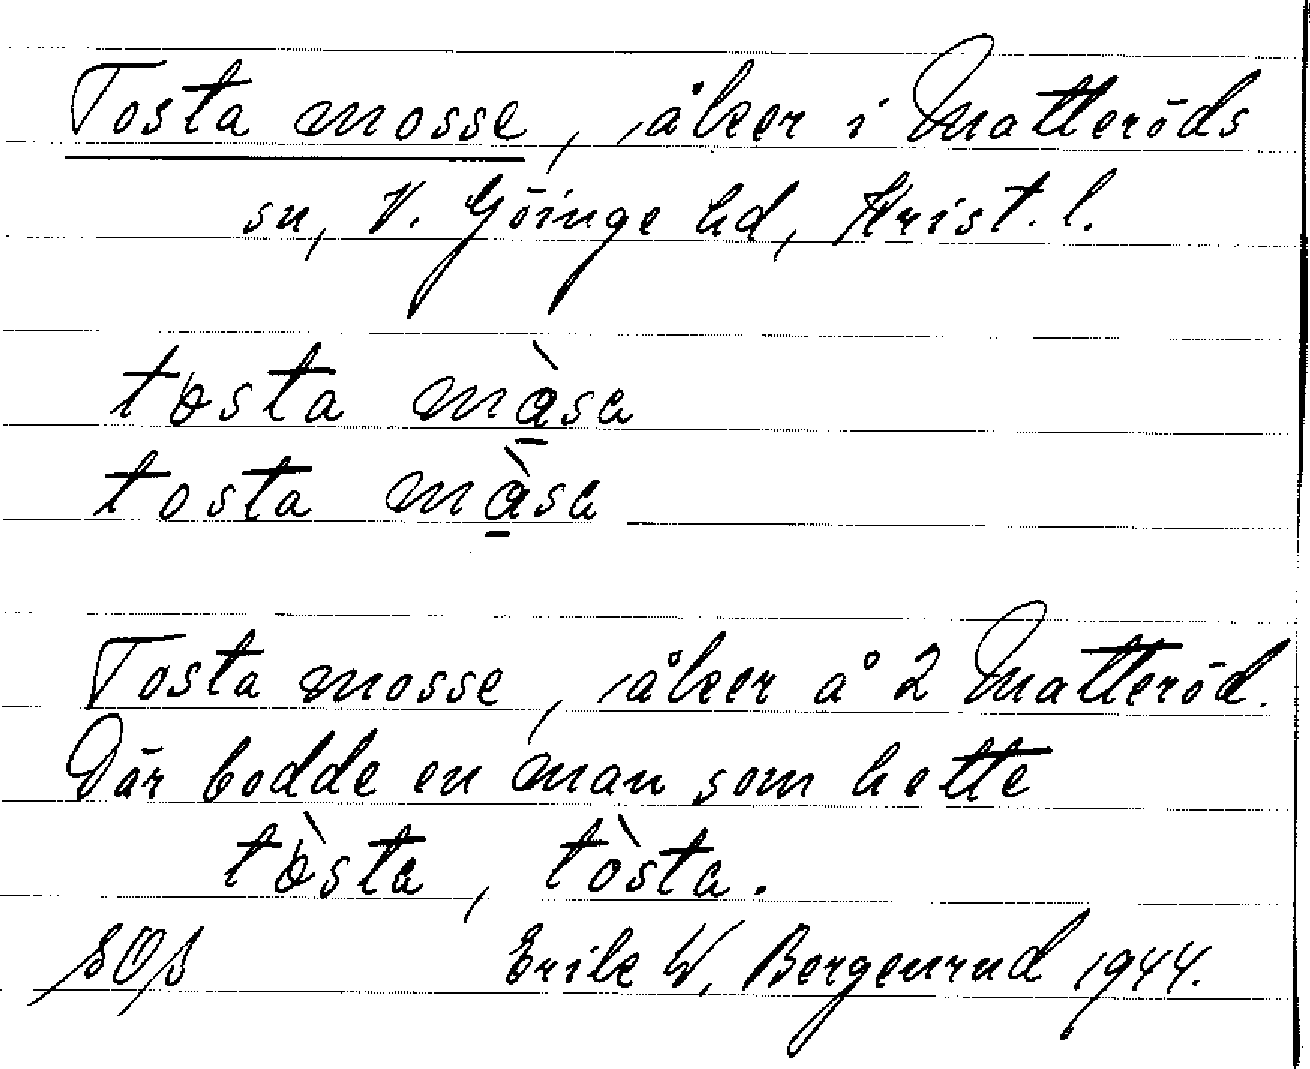 Tosta mosse, åker i Matteröds
sn, V. Göinge hd, Krist. l.
tosta màsa
tosta màsa
Tosta mosse, åker å 2 Matteröd.
Där bodde en man som hette
tòsta, tòsta.
Erik W. Bergenrud 1944.